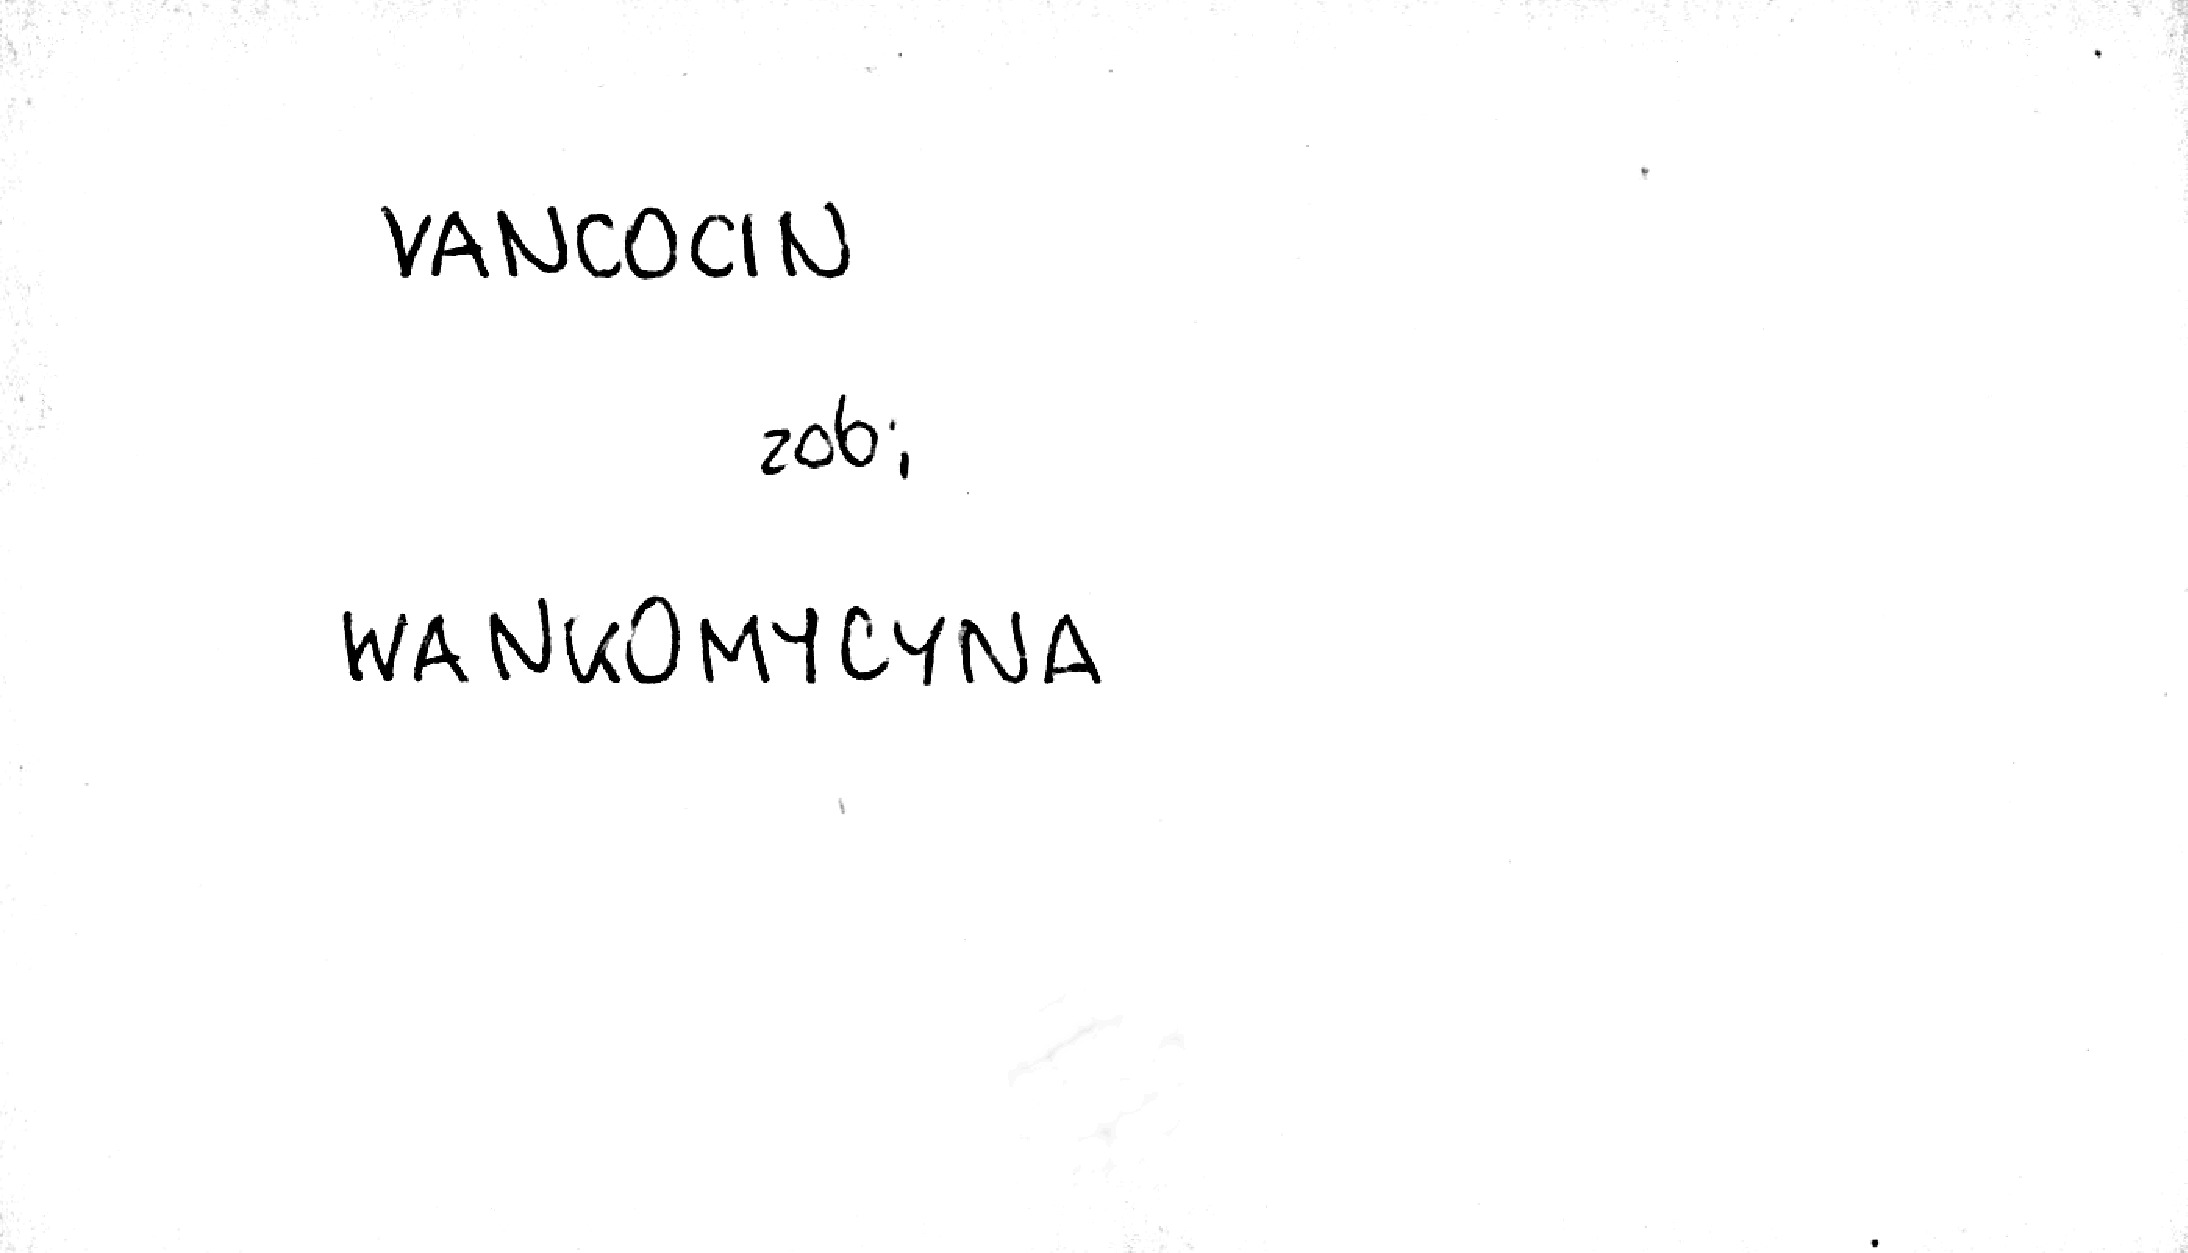 VANCOCIN
zob;
WANKOMYCYNA